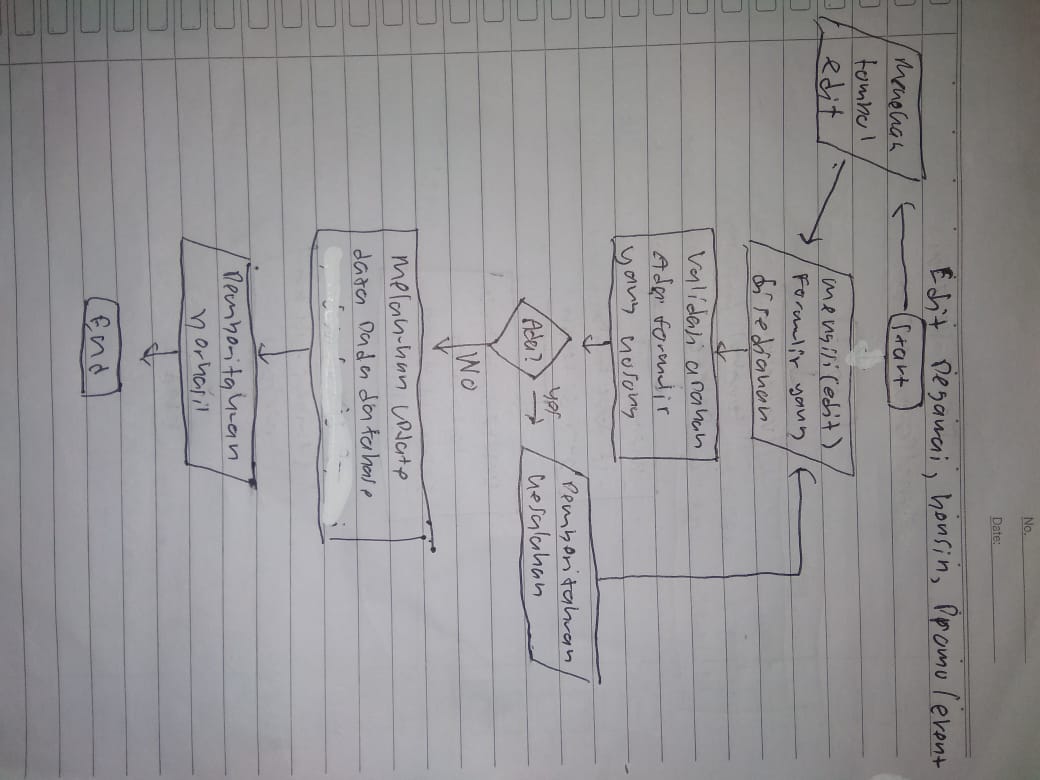 No.
Date:
Edit Pegawai, konsin, Promo/event
Start
Menekan
tombol
edit
mengisi(edit)
Formulir yang
disediakan
Validasi apakah
Ada formulir
yang kosong
Ada?
yes
Pemberitahuan
kesalahan
No
melakukan update
data pada database
Pemberitahuan
berhasil
End